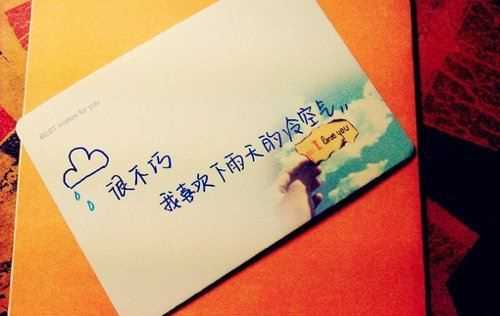 BEST wishes for you
很不巧
我喜欢下雨天的冷空气，，
I love you